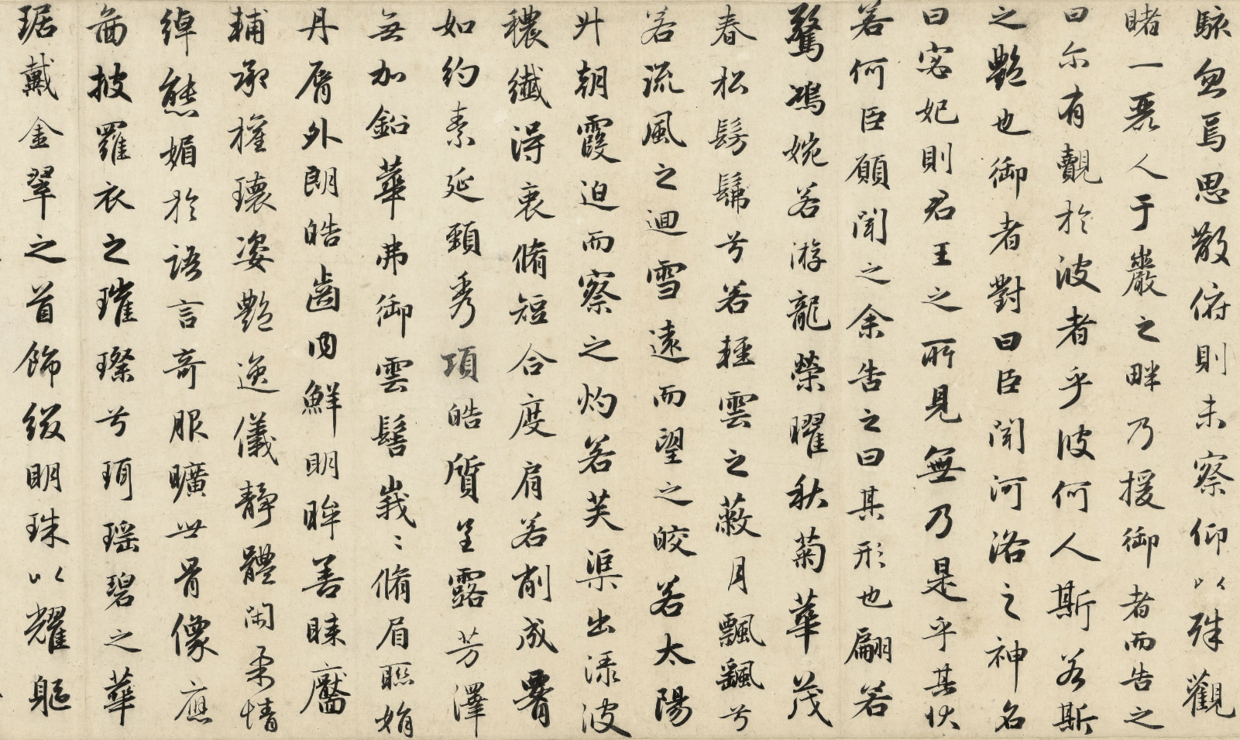 駭忽焉思散俯則未察仰以殊觀
睹一麗人于巖之畔乃援御者而告之
曰尓有覿於彼者乎彼何人斯若斯
之艷也御者對曰臣聞河洛之神名
曰宓妃則君王之所見無乃是乎其狀
若何臣願聞之余告之曰其形也翩若
驚鴻婉若游龍榮曜秋菊華茂
春松髣髴兮若輕雲之蔽月飄飖兮
若流風之迴雪遠而望之皎若太陽
升朝霞迫而察之灼若芙渠出淥波
穠纖得衷脩短合度肩若削成腰
如約素延頸秀項皓質呈露芳澤
無加鉛華弗御雲髻峩〻脩眉聯娟
丹脣外朗皓齒内鮮明眸善睞靨
輔承權瓌姿艷逸儀靜體閑柔情
綽態媚於語言奇服曠世骨像應
啚披羅衣之璀璨兮珥瑶碧之華
琚戴金翠之首飾綴明珠以耀軀